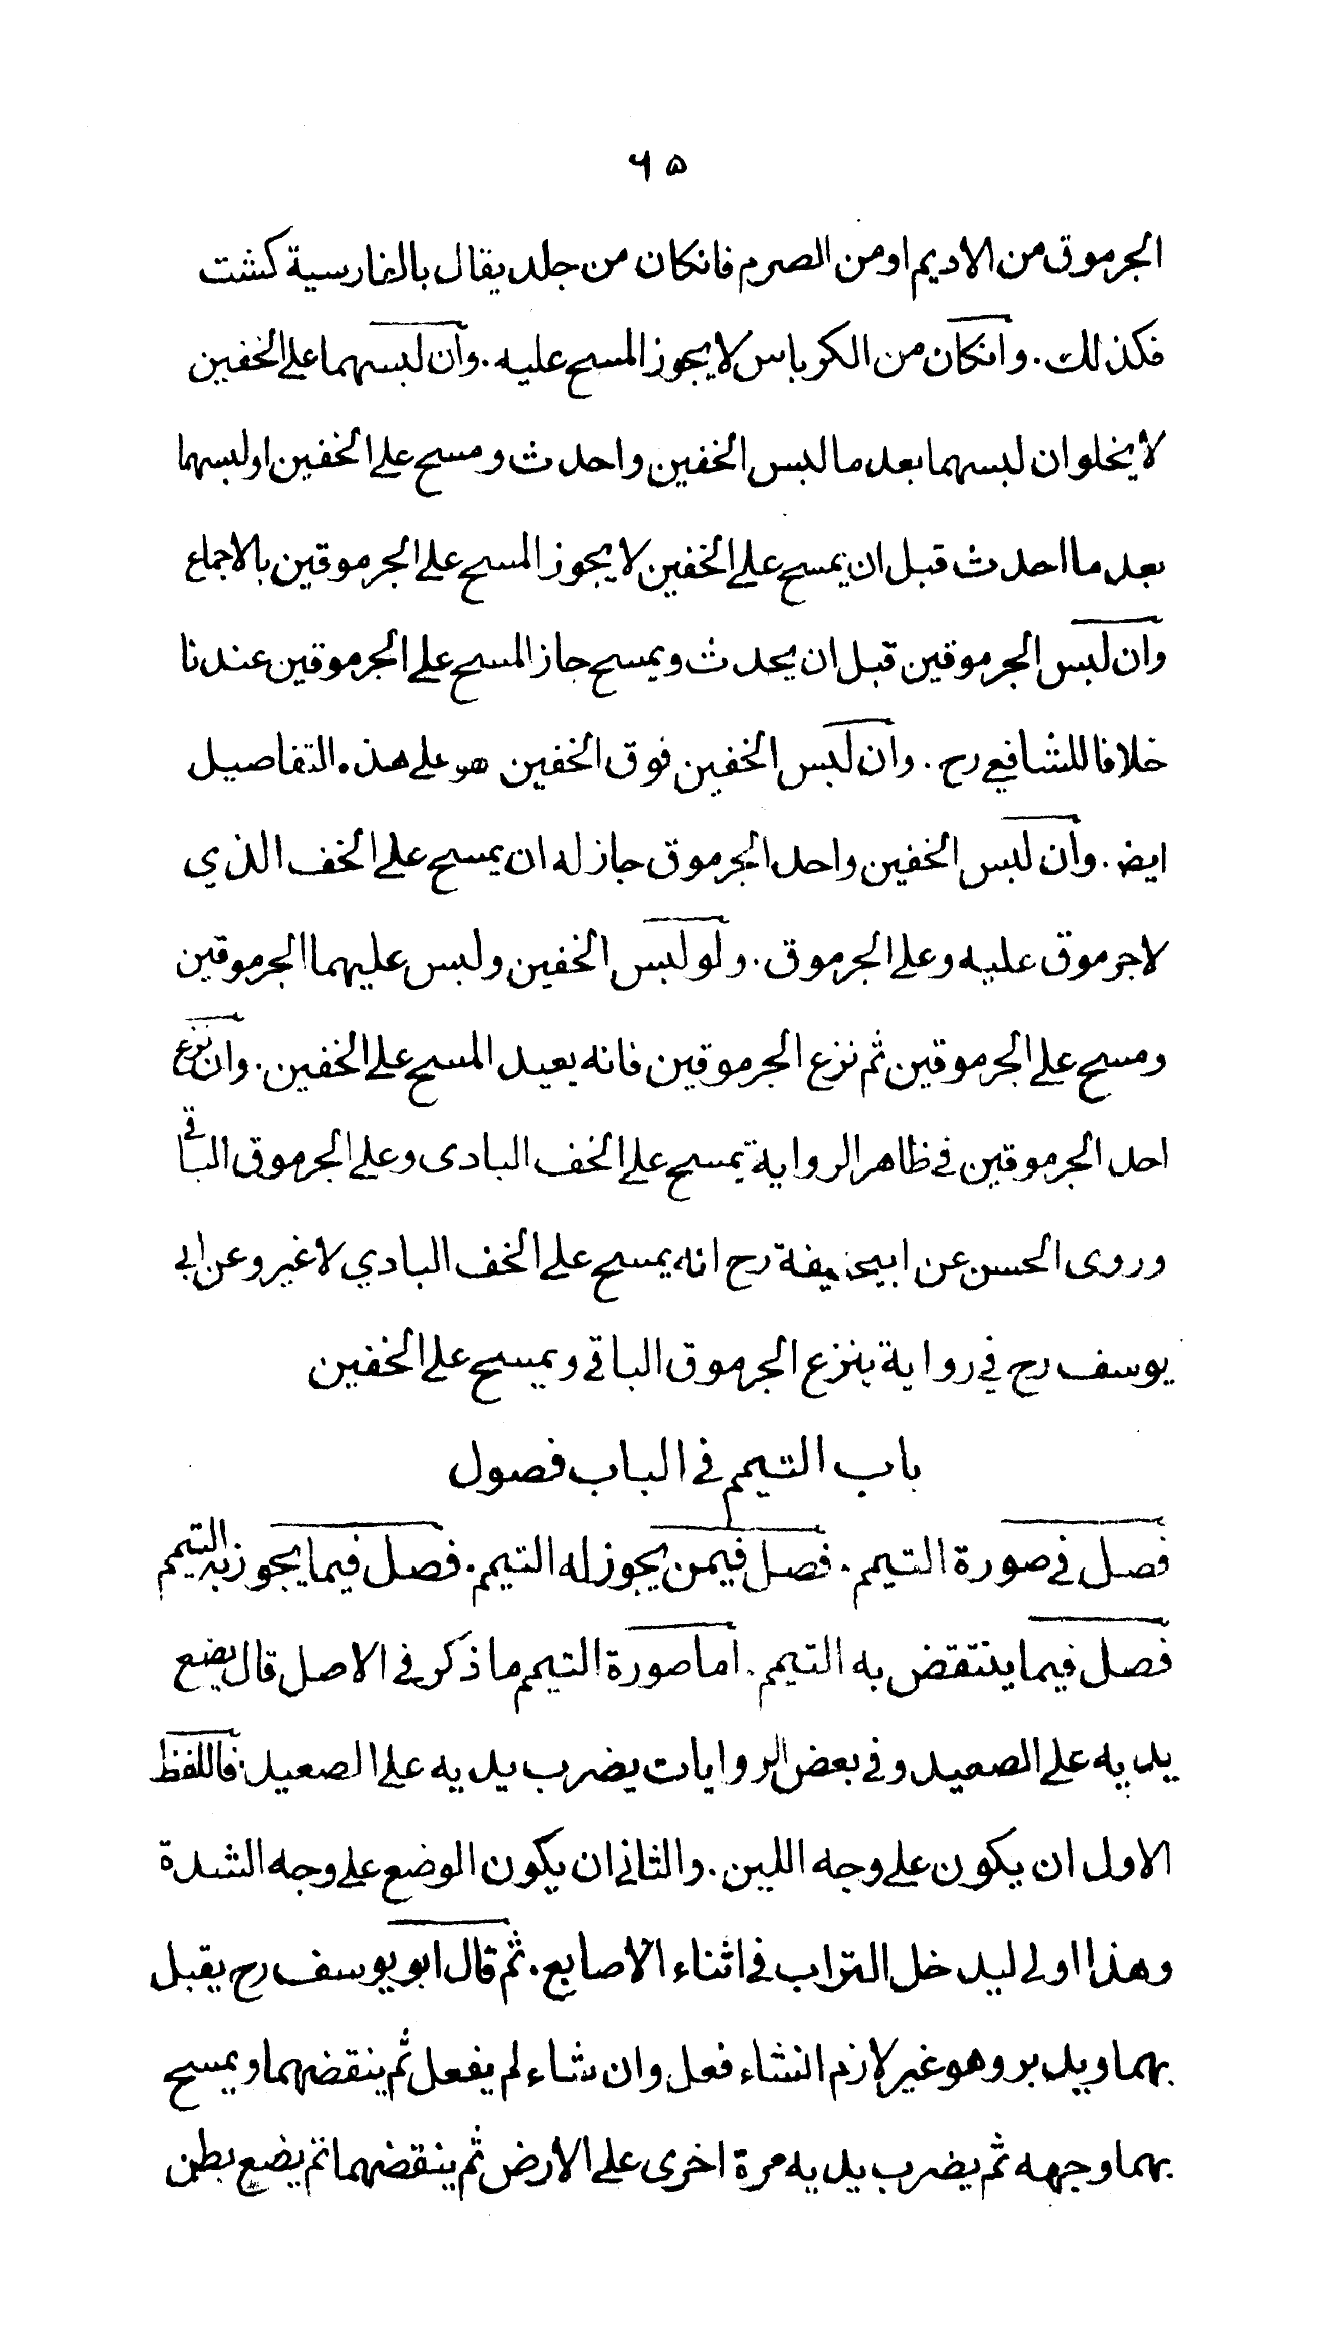 ٦٥
الجرموق من الاديم اومن الصرم فانكان من جلد يقال بالفارسية كشت
فكذلك . وانكان من الكرباس لا يجوز المسح عليه . وان لبسهما على الخفين
لا يخلوان لبسهما بعد ما لبس الخفين واحدث ومسح على الخفين اولبسهما
بعد ما احدث قبل ان يمسح على الخفين لا يجوز المسح على الجرموقين بالاجماع
وان لبس الجرموقين قبل ان يحدث ويمسح جاز المسح على الجرموقين عندنا
خلافا للشافعي رح . وان لبس الخفين فوق الخفين هو على هذه التفاصيل
ايض . وان لبس الخفين واحد الجرموق جاز له ان يمسح على الخف الذي
لا جرموق عليه وعلى الجرموق . ولو لبس الخفين ولبس عليهما الجرموقين
ومسح على الجرموقين ثم نزع الجرموقين فانه يعيد المسح على الخفين . وان نزع
احد الجرموقين في ظاهر الرواية يمسح على الخف البادى وعلى الجرموق الباقي
وروى الحسن عن ابيحنيفة رح انه يمسح على الخف البادي لا غير وعن ابي
يوسف رح في رواية ينزع الجرموق الباقي ويمسح على الخفين
باب التيمم في الباب فصول
فصل في صورة التيمم . فصل فيمن يجوز له التيمم . فصل فيما يجوز به التيمم
فصل فيما ينتقض به التيمم . اما صورة التيمم ما ذكر في الاصل قال يضع
يديه على الصعيد وفي بعض الروايات يضرب يديه على الصعيد فاللفظ
الاول ان يكون على وجه اللين . والثاني ان يكون الوضع على وجه الشدة
وهذا اولى ليدخل التراب في اثناء الاصابع . ثم قال ابو يوسف رح يقبل
بهما ويدبر وهو غير لازم انشاء فعل وان شاء لم يفعل ثم ينفضهما ويمسح
بهما وجهه ثم يضرب يديه مرة اخرى على الارض ثم ينفضهما ثم يضع بطن